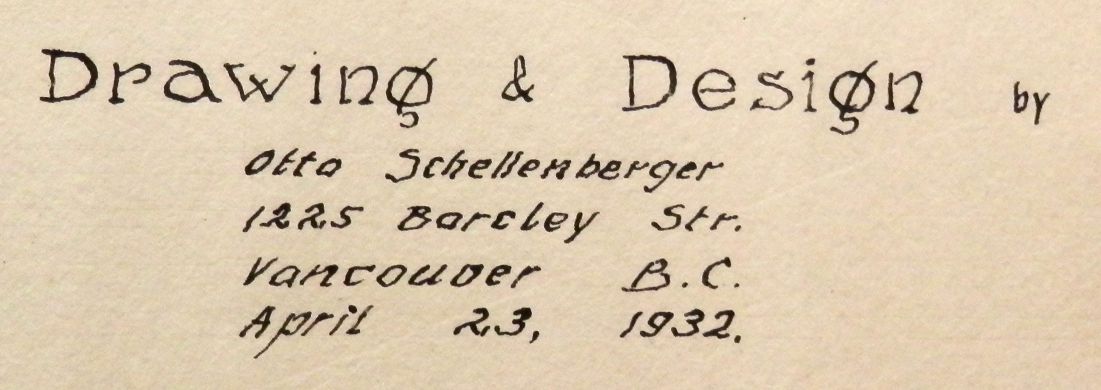 Drawing & Design by
Otto Schellenberger
1225 Barcley Str.
Vancouver B.C.
April 23, 1932.